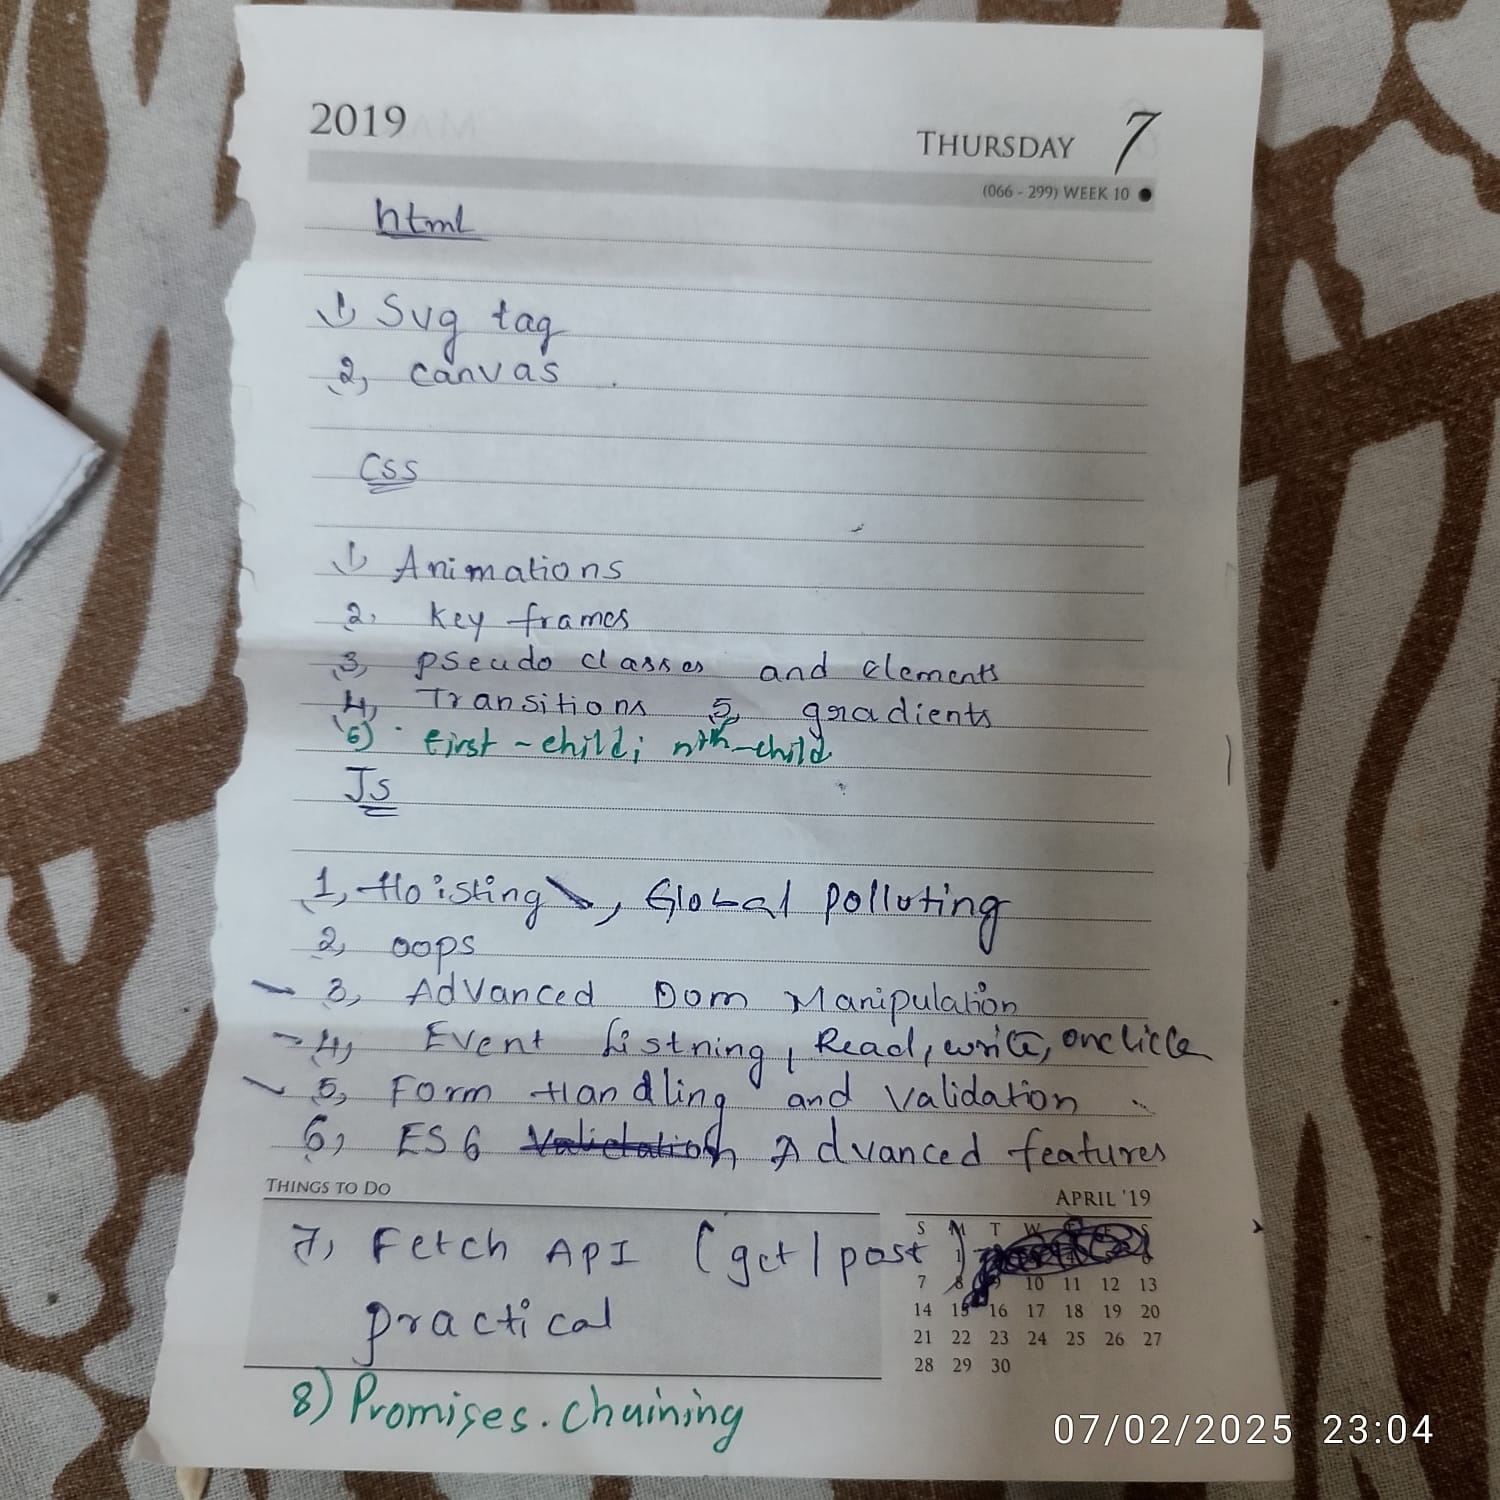 2019
THURSDAY 7
(066 - 299) WEEK 10
html
1) Svg tag
2, canvas
Css
1) Animations
2. Key frames
3, pseudo classes and elements
4, Transitions 5, gradients
6) first-child; nth-child
Js
1, Hoisting, Global Polluting
2, oops
3, Advanced Dom Manipulation
4, Event Listning, Read, write, onclick
5, Form Handling and Validation
6, ES6 Validation Advanced features
THINGS TO DO
APRIL '19
7, Fetch API (get/post)
practical
S M T W
7 8 9 10 11 12 13
14 15 16 17 18 19 20
21 22 23 24 25 26 27
28 29 30
8) Promises. chaining
07/02/2025 23:04